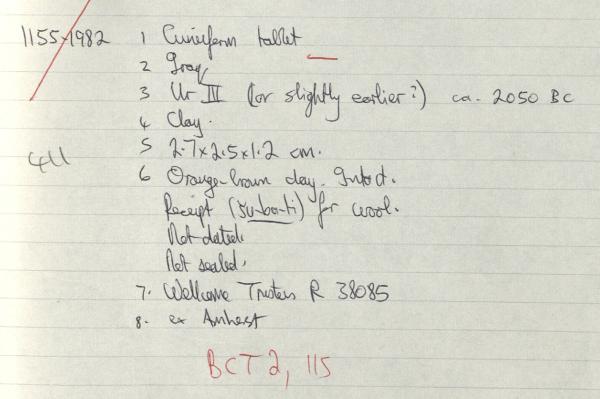 1155-1982 1 Cuneiform tablet
2 Iraq
3 Ur III (or slightly earlier?) ca. 2050 BC
4 Clay.
411
5 2.7x2.5x1.2 cm.
6 Orange-brown clay. Intact.
Receipt (šu-ba-ti) for wool.
Not dated.
Not sealed.
7. Wellcome Trustees R 38085
8. ex Amherst
BCT 2, 115